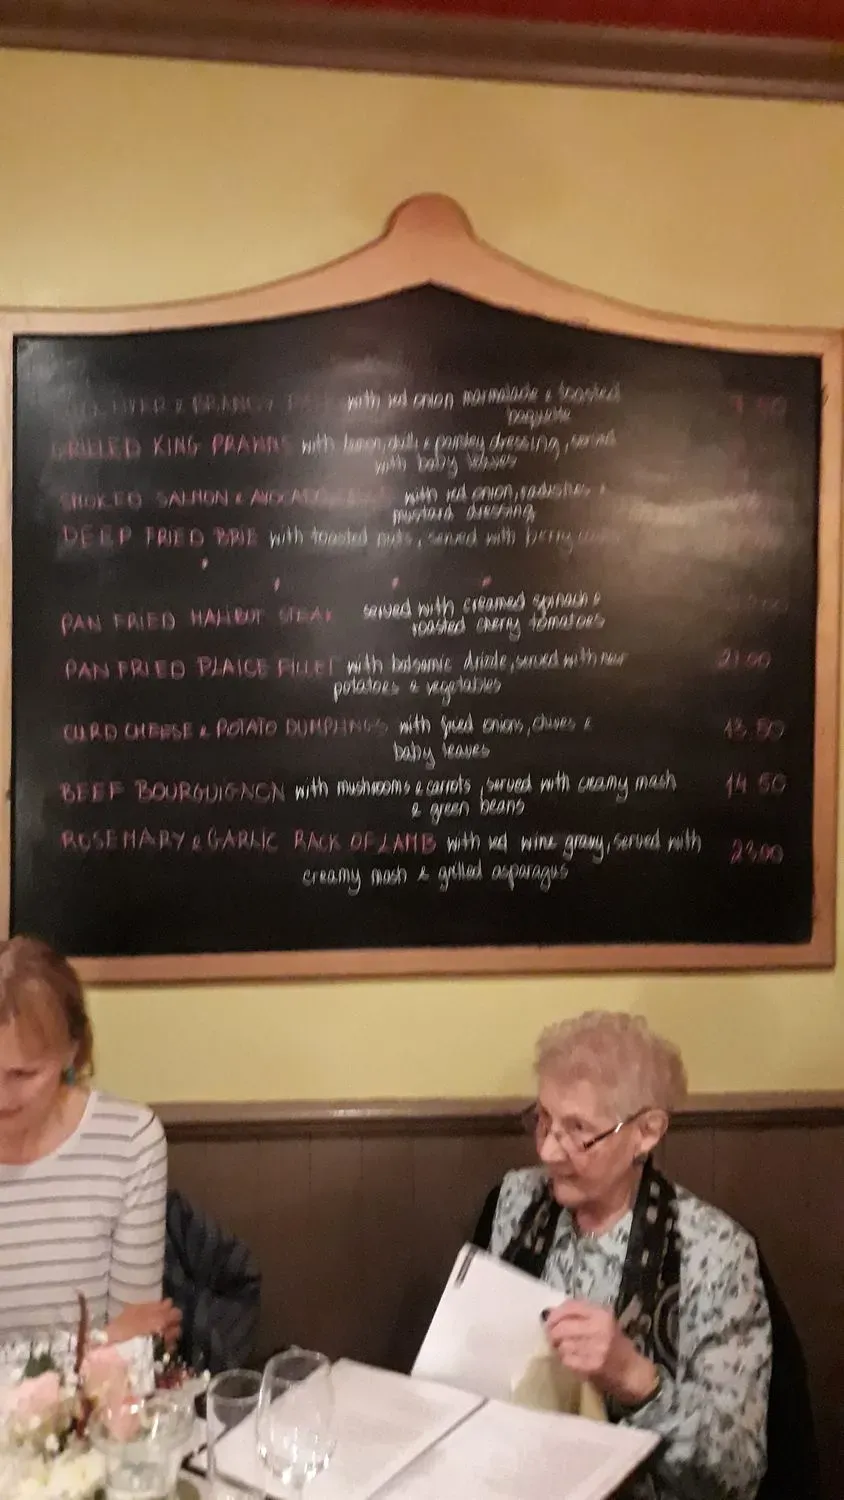 LIVER & BRANDY with red onion marmalade & toasted
baguette
GRILLED KING PRAWNS with lemon, chilli & parsley dressing, served
with baby leaves
SMOKED SALMON & AVOCADO with red onion, radishes &
mustard dressing
DEEP FRIED BRIE with toasted nuts, served with berry
PAN FRIED HALIBUT STEAK served with creamed spinach &
roasted cherry tomatoes
PAN FRIED PLAICE FILLET with balsamic drizzle, served with new 21.00
potatoes & vegetables
CURD CHEESE & POTATO DUMPLINGS with fried onions, chives & 13.50
baby leaves
BEEF BOURGUIGNON with mushrooms & carrots, served with creamy mash 14.50
& green beans
ROSEMARY & GARLIC RACK OF LAMB with red wine gravy, served with 23.00
creamy mash & grilled asparagus